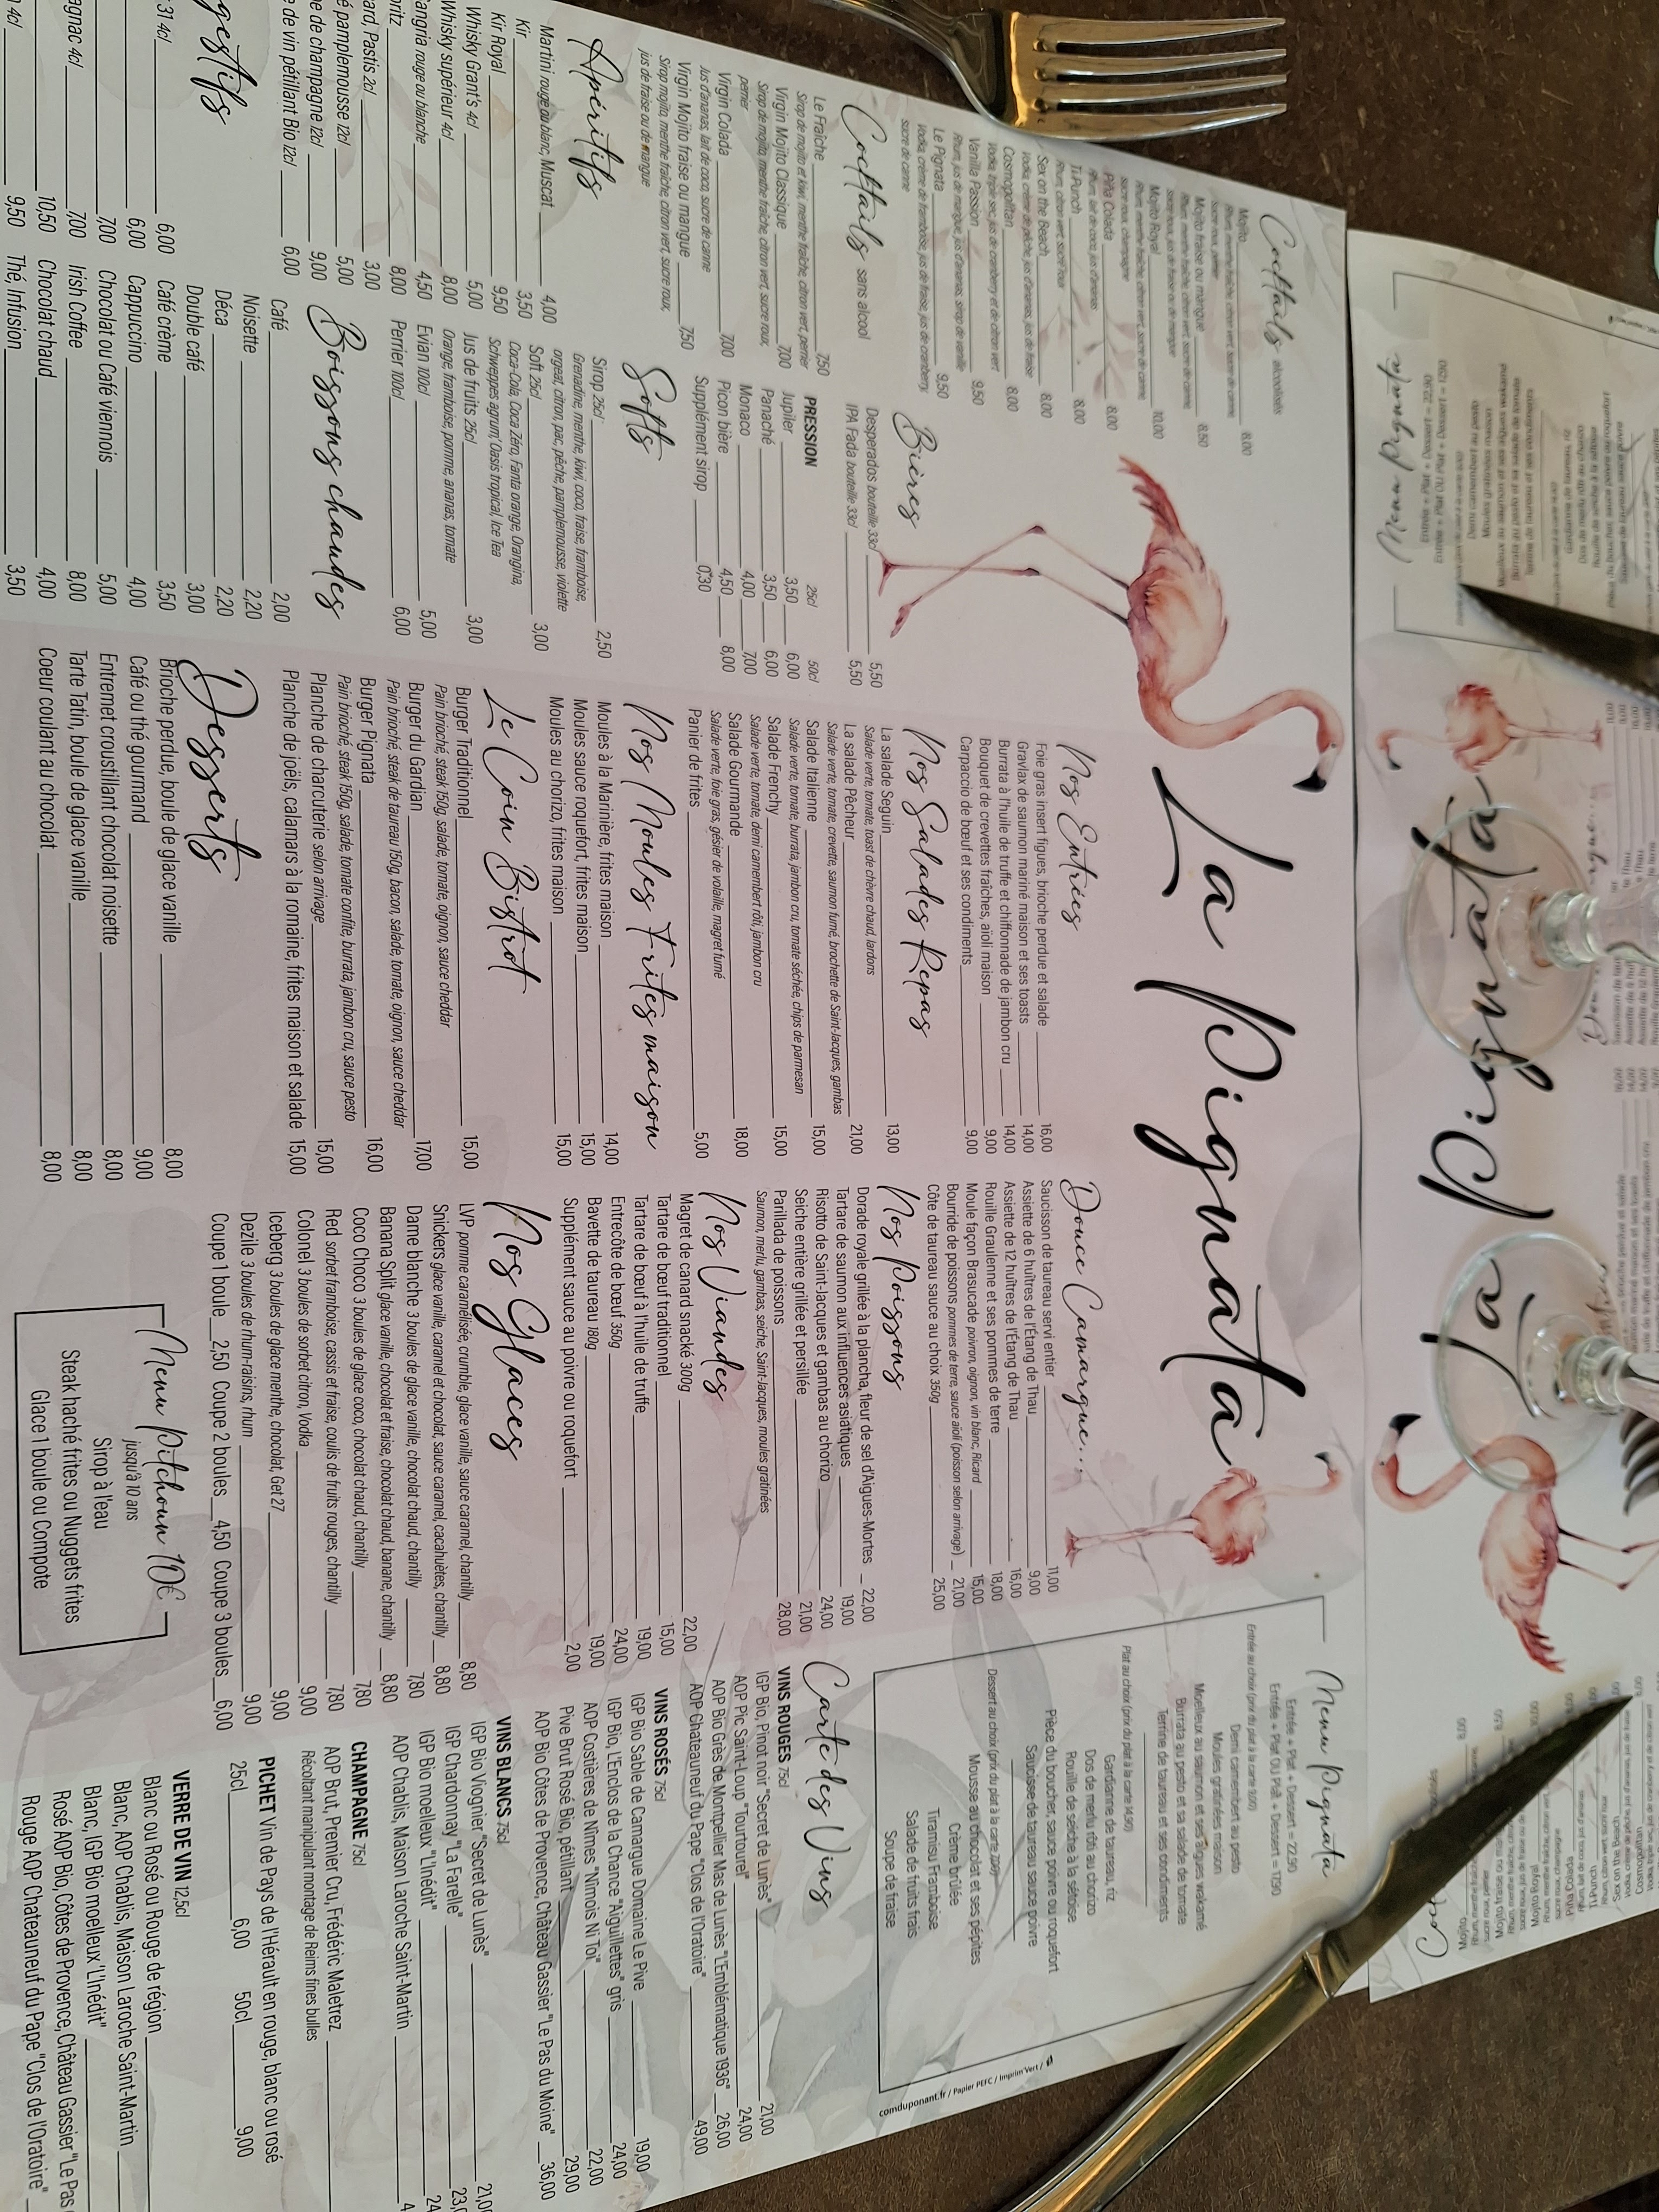 La Pignata
Cocktails alcoolisés
Mojito 8,00
Rhum, menthe fraîche, citron vert, sucre de canne
sucre roux, perrier
Mojito fraise ou mangue 8,50
Rhum, menthe fraîche, citron vert, sucre de canne
sucre roux, jus de fraise ou de mangue
Mojito Royal 10,00
Rhum, menthe fraîche, citron vert, sucre de canne
sucre roux, champagne
Piña Colada 8,00
Rhum, lait de coco, jus d'ananas
Ti Punch 8,00
Rhum, citron vert, sucre roux
Sex on the Beach 8,00
Vodka, crème de pêche, jus d'ananas, jus de fraise
Cosmopolitan 8,00
Vodka, triple sec, jus de cranberry et de citron vert
Vanilla Passion 9,50
Rhum, jus de mangue, jus d'ananas, sirop de vanille
Le Pignata 9,50
Vodka, crème de framboise, jus de fraise, jus de cranberry,
sucre de canne
Cocktails sans alcool
Le Fraîche 7,50
Sirop de mojito et kiwi, menthe fraîche, citron vert, perrier
Virgin Mojito Classique 7,00
Sirop de mojito, menthe fraîche, citron vert, sucre roux,
perrier
Virgin Colada 7,00
Jus d'ananas, lait de coco, sucre de canne
Virgin Mojito fraise ou mangue 7,50
Sirop mojito, menthe fraîche, citron vert, sucre roux,
jus de fraise ou de mangue
Apéritifs
Martini rouge ou blanc, Muscat 4,00
Kir 3,50
Kir Royal 9,50
Whisky Grant's 4cl 5,00
Whisky supérieur 4cl 8,00
angria rouge ou blanche 4,50
pritz 8,00
ard, Pastis 2cl 3,00
é pamplemousse 12cl 5,00
e de champagne 12cl 9,00
e de vin pétillant Bio 12cl 6,00
gestifs
31 4cl 6,00
6,00
7,00
agnac 4cl 7,00
10,50
4cl 9,50
Bières
Desperados bouteille 33cl 5,50
IPA Fada bouteille 33cl 5,50
PRESSION 25cl 50cl
Jupiler 3,50 6,00
Panaché 3,50 6,00
Monaco 4,00 7,00
Picon bière 4,50 8,00
Supplément sirop 0,30
Softs
Sirop 25cl 2,50
Grenadine, menthe, kiwi, coco, fraise, framboise,
orgeat, citron, pac, pêche, pamplemousse, violette
Soft 25cl 3,00
Coca-Cola, Coca Zéro, Fanta orange, Orangina,
Schweppes agrum', Oasis tropical, Ice Tea
Jus de fruits 25cl 3,00
Orange, framboise, pomme, ananas, tomate
Evian 100cl 5,00
Perrier 100cl 6,00
Boissons chaudes
Café 2,00
Noisette 2,20
Déca 2,20
Double café 3,00
Café crème 3,50
Cappuccino 4,00
Chocolat ou Café viennois 5,00
Irish Coffee 8,00
Chocolat chaud 4,00
Thé, Infusion 3,50
Nos Entrées
Foie gras insert figues, brioche perdue et salade 16,00
Gravlax de saumon mariné maison et ses toasts 14,00
Burrata à l'huile de truffe et chiffonnade de jambon cru 14,00
Bouquet de crevettes fraîches, aioli maison 9,00
Carpaccio de bœuf et ses condiments 9,00
Nos Salades Repas
La salade Seguin 13,00
Salade verte, tomate, toast de chèvre chaud, lardons
La salade Pêcheur 21,00
Salade verte, tomate, crevette, saumon fumé, brochette de Saint-Jacques, gambas
Salade Italienne 15,00
Salade verte, tomate, burrata, jambon cru, tomate séchée, chips de parmesan
Salade Frenchy 15,00
Salade verte, tomate, demi camembert rôti, jambon cru
Salade Gourmande 18,00
Salade verte, foie gras, gésier de volaille, magret fumé
Panier de frites 5,00
Nos Moules Frites maison
Moules à la Marinière, frites maison 14,00
Moules sauce roquefort, frites maison 15,00
Moules au chorizo, frites maison 15,00
Le Coin Bistrot
Burger Traditionnel 15,00
Pain brioché, steak 150g, salade, tomate, oignon, sauce cheddar
Burger du Gardian 17,00
Pain brioché, steak de taureau 150g, bacon, salade, tomate, oignon, sauce cheddar
Burger Pignata 16,00
Pain brioché, steak 150g, salade, tomate confite, burrata, jambon cru, sauce pesto
Planche de charcuterie selon arrivage 15,00
Planche de joëls, calamars à la romaine, frites maison et salade 15,00
Desserts
Brioche perdue, boule de glace vanille 8,00
Café ou thé gourmand 9,00
Entremet croustillant chocolat noisette 8,00
Tarte Tatin, boule de glace vanille 8,00
Coeur coulant au chocolat 8,00
Douce Camargue...
Saucisson de taureau servi entier 11,00
Assiette de 6 huîtres de l'Étang de Thau 9,00
Assiette de 12 huîtres de l'Étang de Thau 16,00
Rouille Graulenne et ses pommes de terre 18,00
Moule façon Brasucade poivron, oignon, vin blanc, Ricard 15,00
Bourride de poissons pommes de terre, sauce aioli (poisson selon arrivage) 21,00
Côte de taureau sauce au choix 350g 25,00
Nos Poissons
Dorade royale grillée à la plancha, fleur de sel d'Aigues-Mortes 22,00
Tartare de saumon aux influences asiatiques 19,00
Risotto de Saint-Jacques et gambas au chorizo 24,00
Seiche entière grillée et persillée 21,00
Parillada de poissons 28,00
Saumon, merlu, gambas, seiche, Saint-Jacques, moules gratinées
Nos Viandes
Magret de canard snacké 300g 22,00
Tartare de bœuf traditionnel 15,00
Tartare de bœuf à l'huile de truffe 19,00
Entrecôte de bœuf 350g 24,00
Bavette de taureau 180g 19,00
Supplément sauce au poivre ou roquefort 2,00
Nos Glaces
LVP pomme caramélisée, crumble, glace vanille, sauce caramel, chantilly 8,80
Snickers glace vanille, caramel et chocolat, sauce caramel, cacahuètes, chantilly 8,80
Dame blanche 3 boules de glace vanille, chocolat chaud, chantilly 7,80
Banana Split glace vanille, chocolat et fraise, chocolat chaud, banane, chantilly 8,80
Coco Choco 3 boules de glace coco, chocolat chaud, chantilly 7,80
Red sorbet framboise, cassis et fraise, coulis de fruits rouges, chantilly 7,80
Colonel 3 boules de sorbet citron, Vodka 9,00
Iceberg 3 boules de glace menthe, chocolat, Get 27 9,00
Dezile 3 boules de rhum-raisins, rhum 9,00
Coupe 1 boule 2,50 Coupe 2 boules 4,50 Coupe 3 boules 6,00
Menu Pitchoun 10€
jusqu'à 10 ans
Sirop à l'eau
Steak haché frites ou Nuggets frites
Glace 1 boule ou Compote
Menu Pignata
Entrée + Plat + Dessert = 22,90
Entrée + Plat OU Plat + Dessert = 17,90
Entrée au choix (prix du plat à la carte 9,00)
Demi camembert au pesto
Moules gratinées maison
Moelleux au saumon et ses algues wakamé
Burrata au pesto et sa salade de tomate
Terrine de taureau et ses condiments
Plat au choix (prix du plat à la carte 14,90)
Gardianne de taureau, riz
Dos de merlu rôti au chorizo
Rouille de seiche à la sétoise
Pièce du boucher, sauce poivre ou roquefort
Saucisse de taureau sauce poivre
Dessert au choix (prix du plat à la carte 7,00)
Mousse au chocolat et ses pépites
Crème brûlée
Tiramisu Framboise
Salade de fruits frais
Soupe de fraise
comduponant.fr / Papier PEFC / Imprim'Vert /
Carte des Vins
VINS ROUGES 75cl
IGP Bio, Pinot noir "Secret de Lunès" 21,00
AOP Pic Saint-Loup "Tourtourel" 24,00
AOP Bio Grès de Montpellier Mas de Lunès "L'Emblématique 1936" 26,00
AOP Chateauneuf du Pape "Clos de l'Oratoire" 49,00
VINS ROSÉS 75cl
IGP Bio Sable de Camargue Domaine Le Pive 19,00
IGP Bio, L'Enclos de la Chance "Aiguillettes" gris 24,00
AOP Costières de Nîmes "Nîmois Ni Toi" 22,00
Pive Brut Rosé Bio, pétillant 29,00
AOP Bio Côtes de Provence, Château Gassier "Le Pas du Moine" 36,00
VINS BLANCS 75cl
IGP Bio Viognier "Secret de Lunès" 21,00
IGP Chardonnay "La Farelle" 23,
IGP Bio moelleux "L'Inédit" 24
AOP Chablis, Maison Laroche Saint-Martin 4
CHAMPAGNE 75cl
AOP Brut, Premier Cru, Frédéric Maletrez
Récoltant manipulant montage de Reims fines bulles
PICHET Vin de Pays de l'Hérault en rouge, blanc ou rosé
25cl 6,00 50cl 9,00
VERRE DE VIN 12,5cl
Blanc ou Rosé ou Rouge de région
Blanc, AOP Chablis, Maison Laroche Saint-Martin
Blanc, IGP Bio moelleux "L'Inédit"
Rosé AOP Bio, Côtes de Provence, Château Gassier "Le Pas
Rouge AOP Chateauneuf du Pape "Clos de l'Oratoire"
La Pignata
Menu Pignata